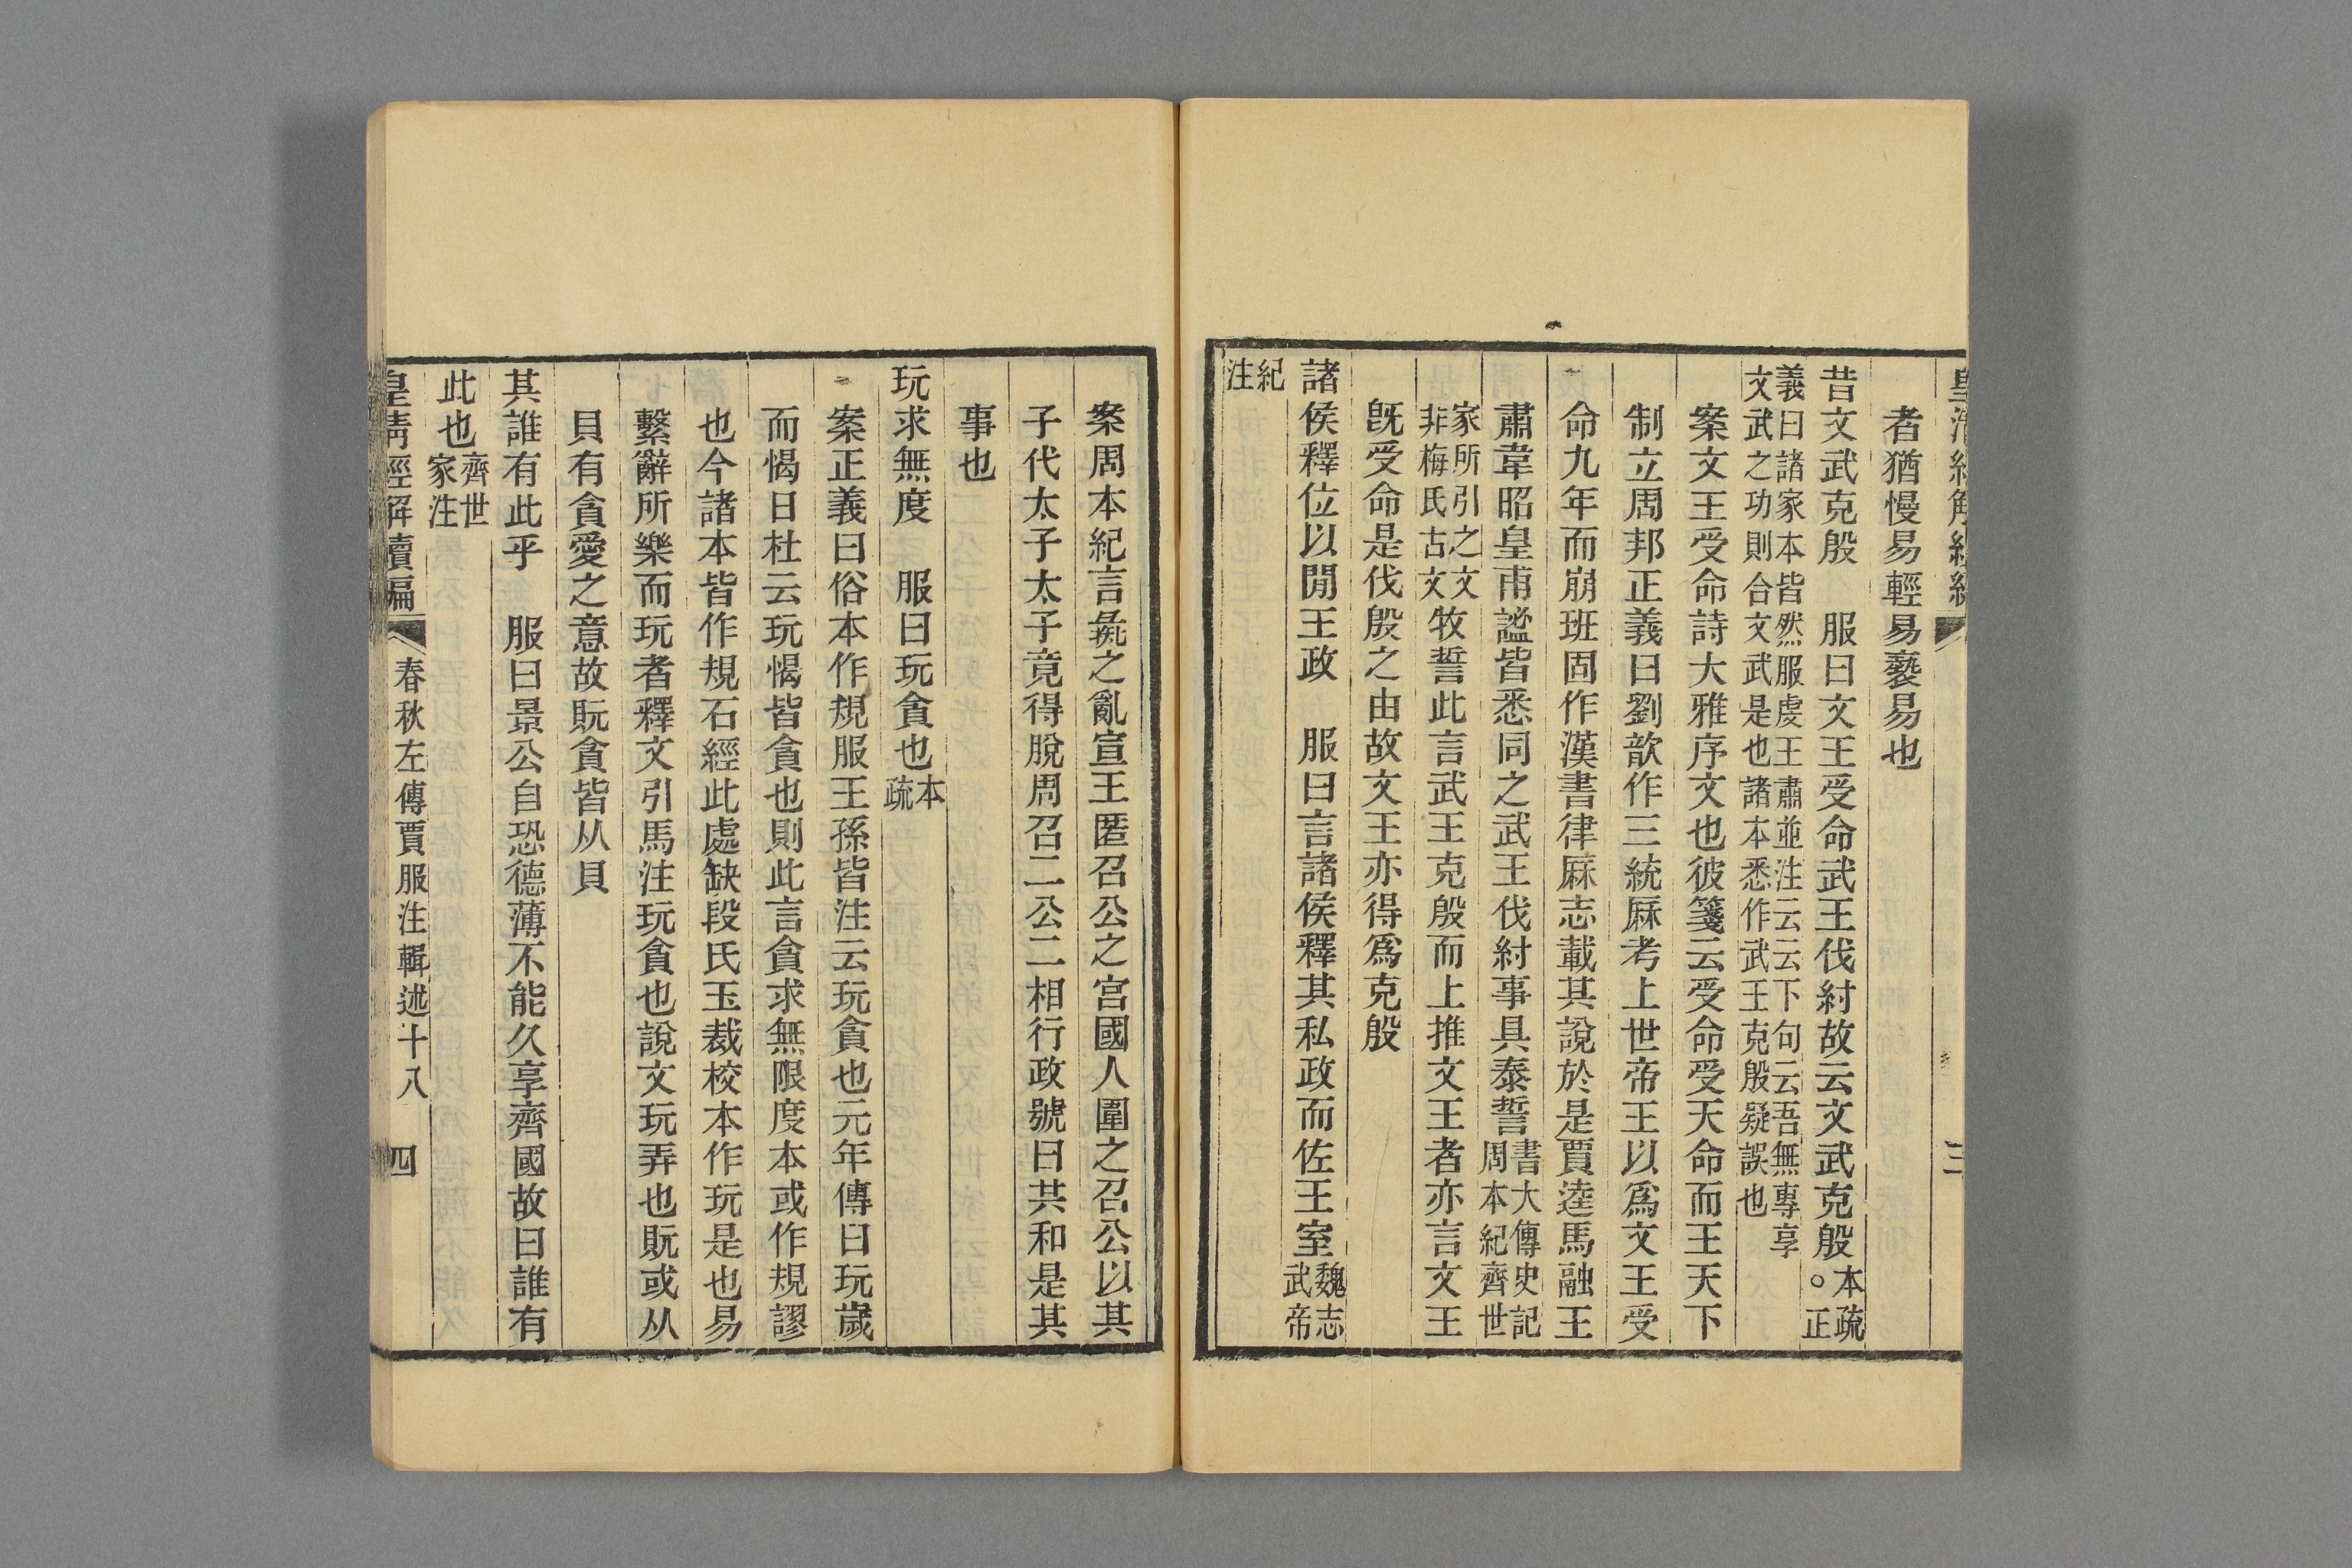 者猶慢易輕易褻易也
昔文武克殷　服曰文王受命武王伐紂故云文武克殷。本疏正
義曰諸家本皆然服虔王肅並注云云下句云吾無專享
文武之功則合文武是也諸本悉作武王克殷疑誤也
案文王受命詩大雅序文也彼箋云受命受天命而王天下
制立周邦正義曰劉歆作三統厤考上世帝王以爲文王受
命九年而崩班固作漢書律厤志載其說於是賈逵馬融王
肅韋昭皇甫謐皆悉同之武王伐紂事具泰誓書大傳史記周本紀齊世
家所引之文非梅氏古文牧誓此言武王克殷而上推文王者亦言文王
旣受命是伐殷之由故文王亦得爲克殷
諸侯釋位以閒王政　服曰言諸侯釋其私政而佐王室魏志武帝
紀注
案周本紀言彘之亂宣王匿召公之宮國人圍之召公以其
子代太子太子竟得脫周召二公二相行政號曰共和是其
事也
玩求無度　服曰玩貪也本疏
案正義曰俗本作規服王孫皆注云玩貪也元年傳曰玩歲
而愒日杜云玩愒皆貪也則此言貪求無限度本或作規謬
也今諸本皆作規石經此處缺段氏玉裁校本作玩是也易
繫辭所樂而玩者釋文引馬注玩貪也說文玩弄也貦或从
貝有貪愛之意故貦貪皆从貝
其誰有此乎　服曰景公自恐德薄不能久享齊國故曰誰有
此也齊世家注
皇清經解續編　春秋左傳賈服注輯述十八　四